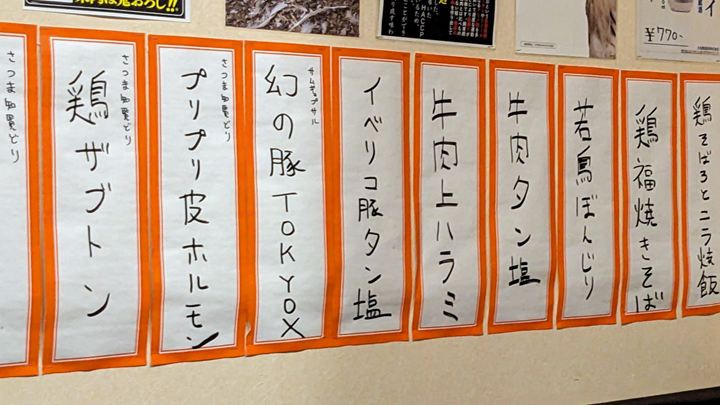 鶏そぼろとニラ焼飯
鶏福焼きそば
若鳥ぼんじり
牛肉タン塩
牛肉上ハラミ
イベリコ豚タン塩
サムギョプサル
幻の豚TOKYOX
さつま知覧どり
プリプリ皮ホルモン
さつま知覧どり
鶏ザブトン
さつま知覧どり
¥770-
HACCP